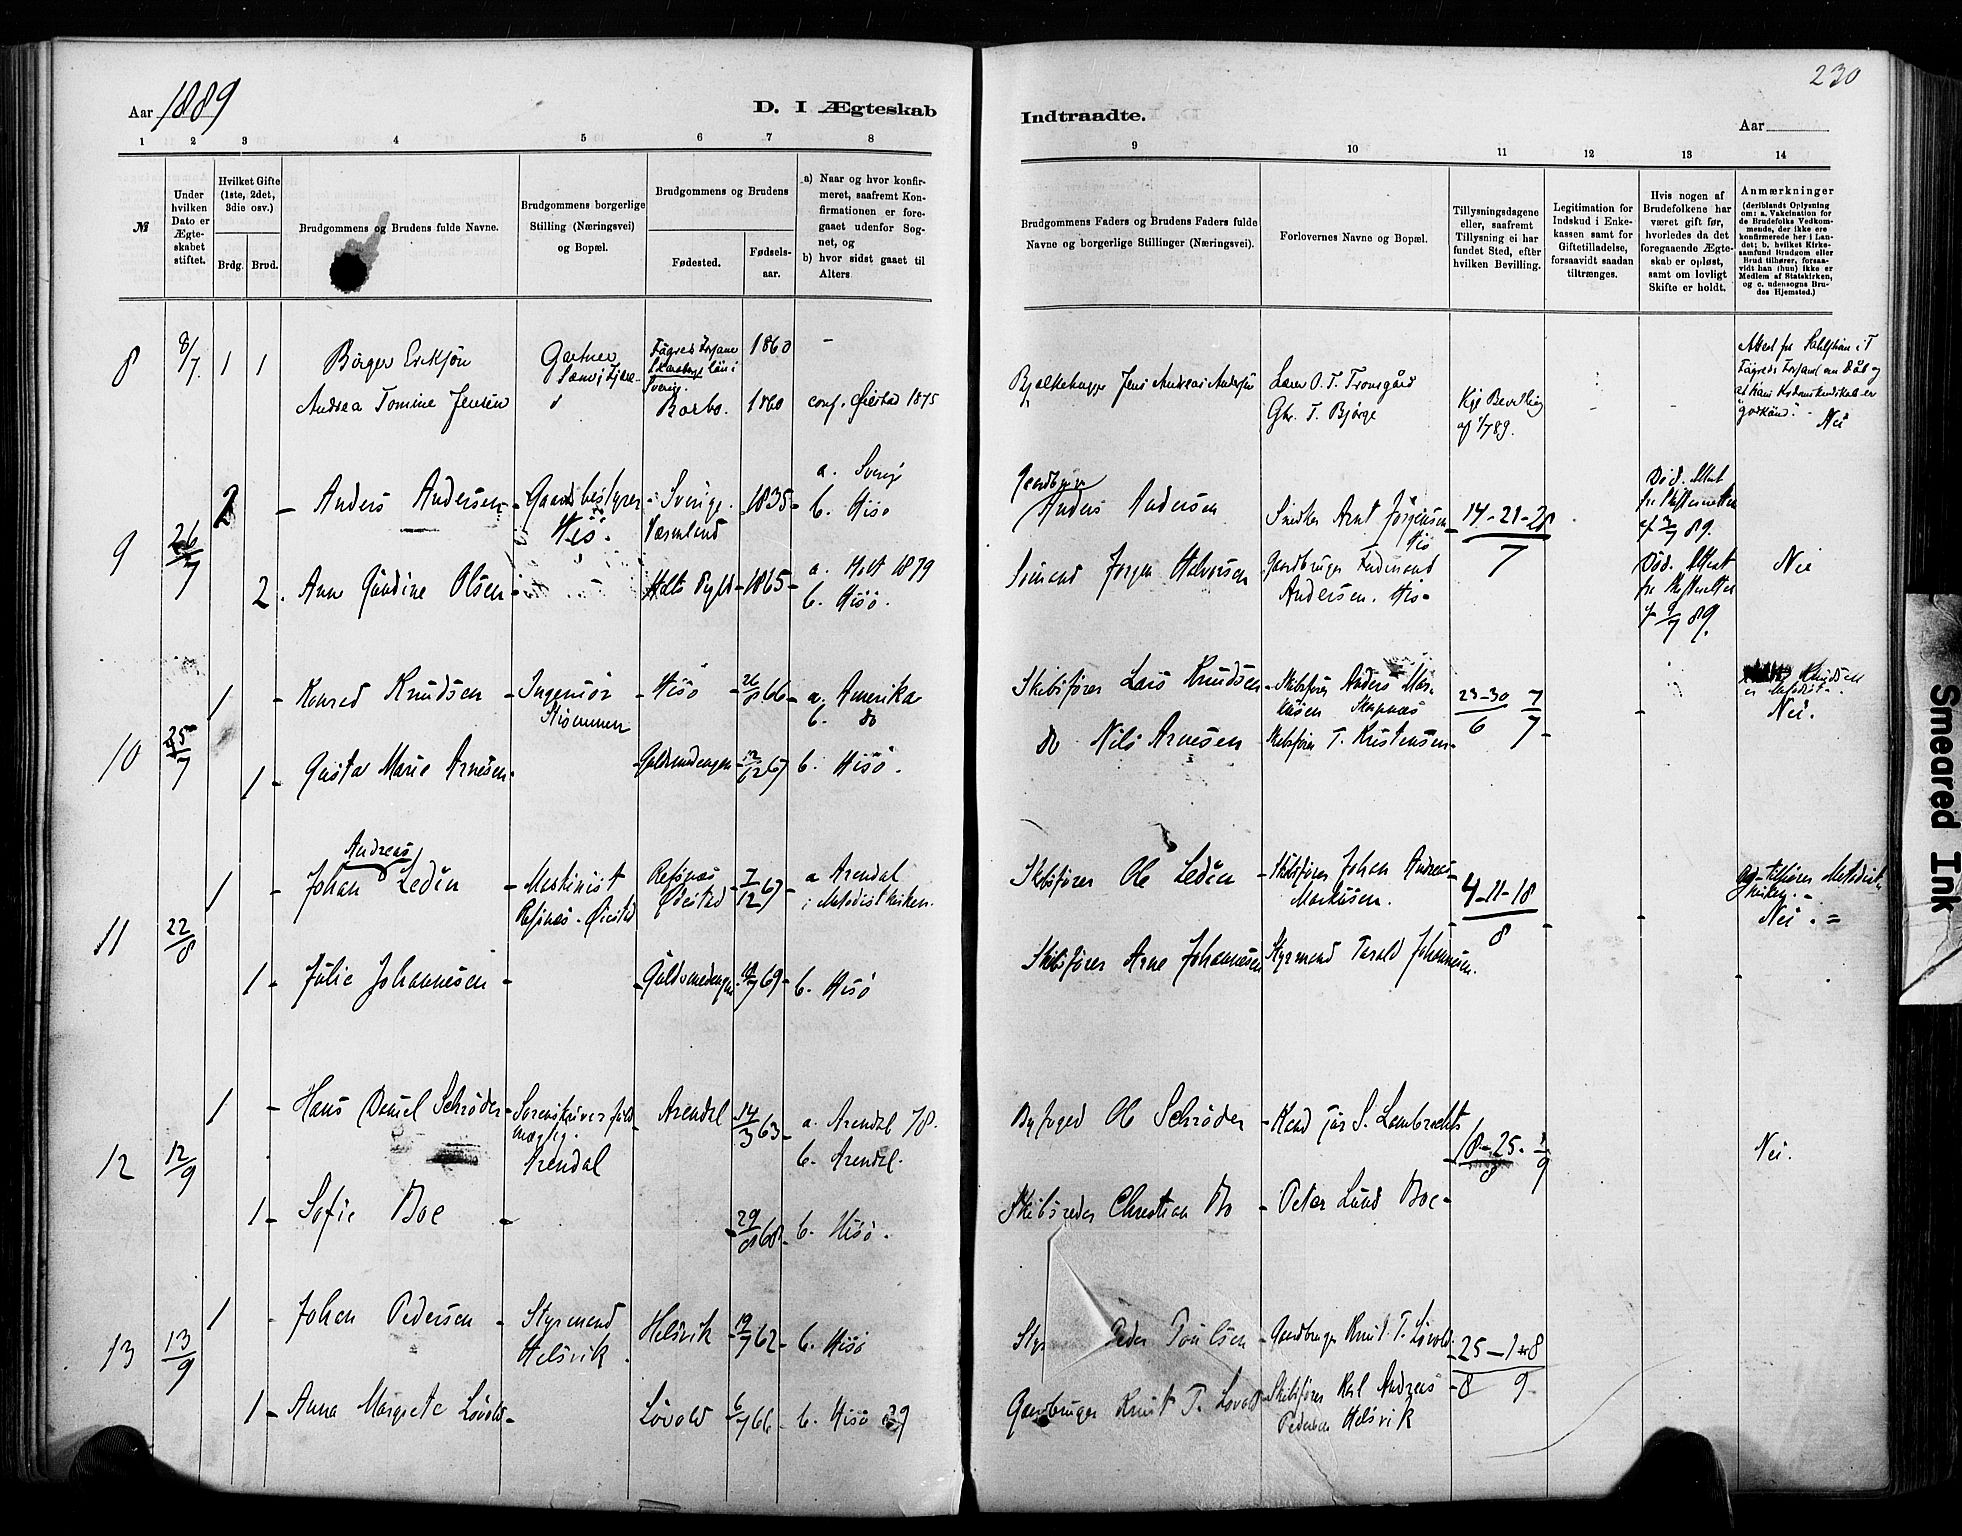 230
Aar 1889
D. I Ægteskab
Indtraadte.
Aar
1 2 3 4 5 6 7 8
9 10 11 12 13 14
№
Under hvilken Dato er Ægteskabet stiftet.
Hvilket Gifte (1ste, 2det, 3die osv.)
Brdg. Brud.
Brudgommens og Brudens fulde Navne.
Brudgommens borgerlige Stilling (Næringsvei) og Bopæl.
Brudgommens og Brudens
Fødested.
Fødselsaar.
a) Naar og hvor konfirmeret, saafremt Konfirmationen er foregaaet udenfor Sognet, og
b) hvor sidst gaaet til Alters.
Brudgommens Faders og Brudens Faders fulde Navne og borgerlige Stillinger (Næringsvei).
Forlovernes Navne og Bopæl.
Tillysningsdagene eller, saafremt Tillysning ei har fundet Sted, efter hvilken Bevilling.
Legitimation for Indskud i Enkekassen samt for Giftetilladelse, forsaavidt saadan tiltrænges.
Hvis nogen af Brudefolkene har været gift før, hvorledes da det foregaaende Ægteskab er opløst, samt om lovligt Skifte er holdt.
Anmærkninger (deriblandt Oplysning om: a. Vakcination for de Brudefolks Vedkommende, der ikke ere konfirmerede her i Landet; b. hvilket Kirkesamfund Brudgom eller Brud tilhører, forsaavidt han (hun) ikke er Medlem af Statskirken, og c. udensogns Brudes Hjemsted.)
8 8/7 1 1 Børger Eriksøn Gartner 1860 –
Andrea Tomine Jensen Barbo. 1860 conf. Øiestad 1875
Bjelkehugger Jens Andreas Andersen
Lærer O. T. Tromsgård
Gbr. T. Bjørge
Kgl Bevilling af 1/7 89.
Nei
9 26/7 2 – Anders Andersen – Gaardbestyrer Hisø. – Sverige. Værmland 1835 – a. Sverig
b. Hisø
2. Anne Gundine Olsen – Holt 1865 – a. Holt 1879
b. Hisø.
Gaardbruger
Anders Andersen
Snedker Arnt Jørgensen Hisø
14 – 21 – 28
7
Død. Attest fr. Skifteretten af 3/7 89.
Sømand Jørgen Halvorsen
Gaardbruger Ferdinand Andersen. Hisø
Død. Attest fr. Skifteretten af 9/7 89.
Nei
10 25/7 1 – Konrad Knudsen – Ingeniør – Hisø – 66 – a. Amerika
b. do
1 – Gusta Marie Arnesen – Guldsmedengen 67 b. Hisø.
Skibsfører Lars Knudsen – Skibsfører Anders Markusen
23–30 7
6 7
Knudsen er Metodist.
Nei.
do Nils Arnesen – Skibsfører T. Kristensen –
11 22/8 1 – Andreas
Johan Ledin – Maskinist Refsnes – Øiestad Refsnes Øiestad – 7/12 67 – a Arendal
i Metodistkirken.
1 – Julie Johannesen – Guldsmedengen 69 – b. Hisø
Skibsfører Ole Ledin – Skibsfører Johan Andreas Markusen.
4–11–18
8
tilhører Metodistkirken. –
Nei. =
Skibsfører Arne Johannesen Styrmand Tarald Johannesen.
12 12/9 1 – Hans Daniel Schrøder – Sorenskriverfuldmægtig. Arendal Arendal 14/3 63 – a. Arendal 78.
b. Arendal.
1 – Sofie Boe – 29/8 68 – b. Hisø.
Byfoged Ole Schrøder – Kand jur S. Lambrechts
18–25. 1
8 9
Nei.
Skibsreder Christian Bo – Peter Lund Boe –
13 13/9 1 – Johan Pedersen – Styrmand Helsvik. Helsvik 62 – b. Hisø
1 – Anna Margrete Løvold – Løvold – 6/7 66 – b. Hisø
Peder Poulsen – Gaardbruger Knut T. Løvold
25 – 1 – 8
8 9
Gaardbruger Knut T. Løvold – Skibsfører Karl Andreas Pedersen Helsvik
Smeared Ink